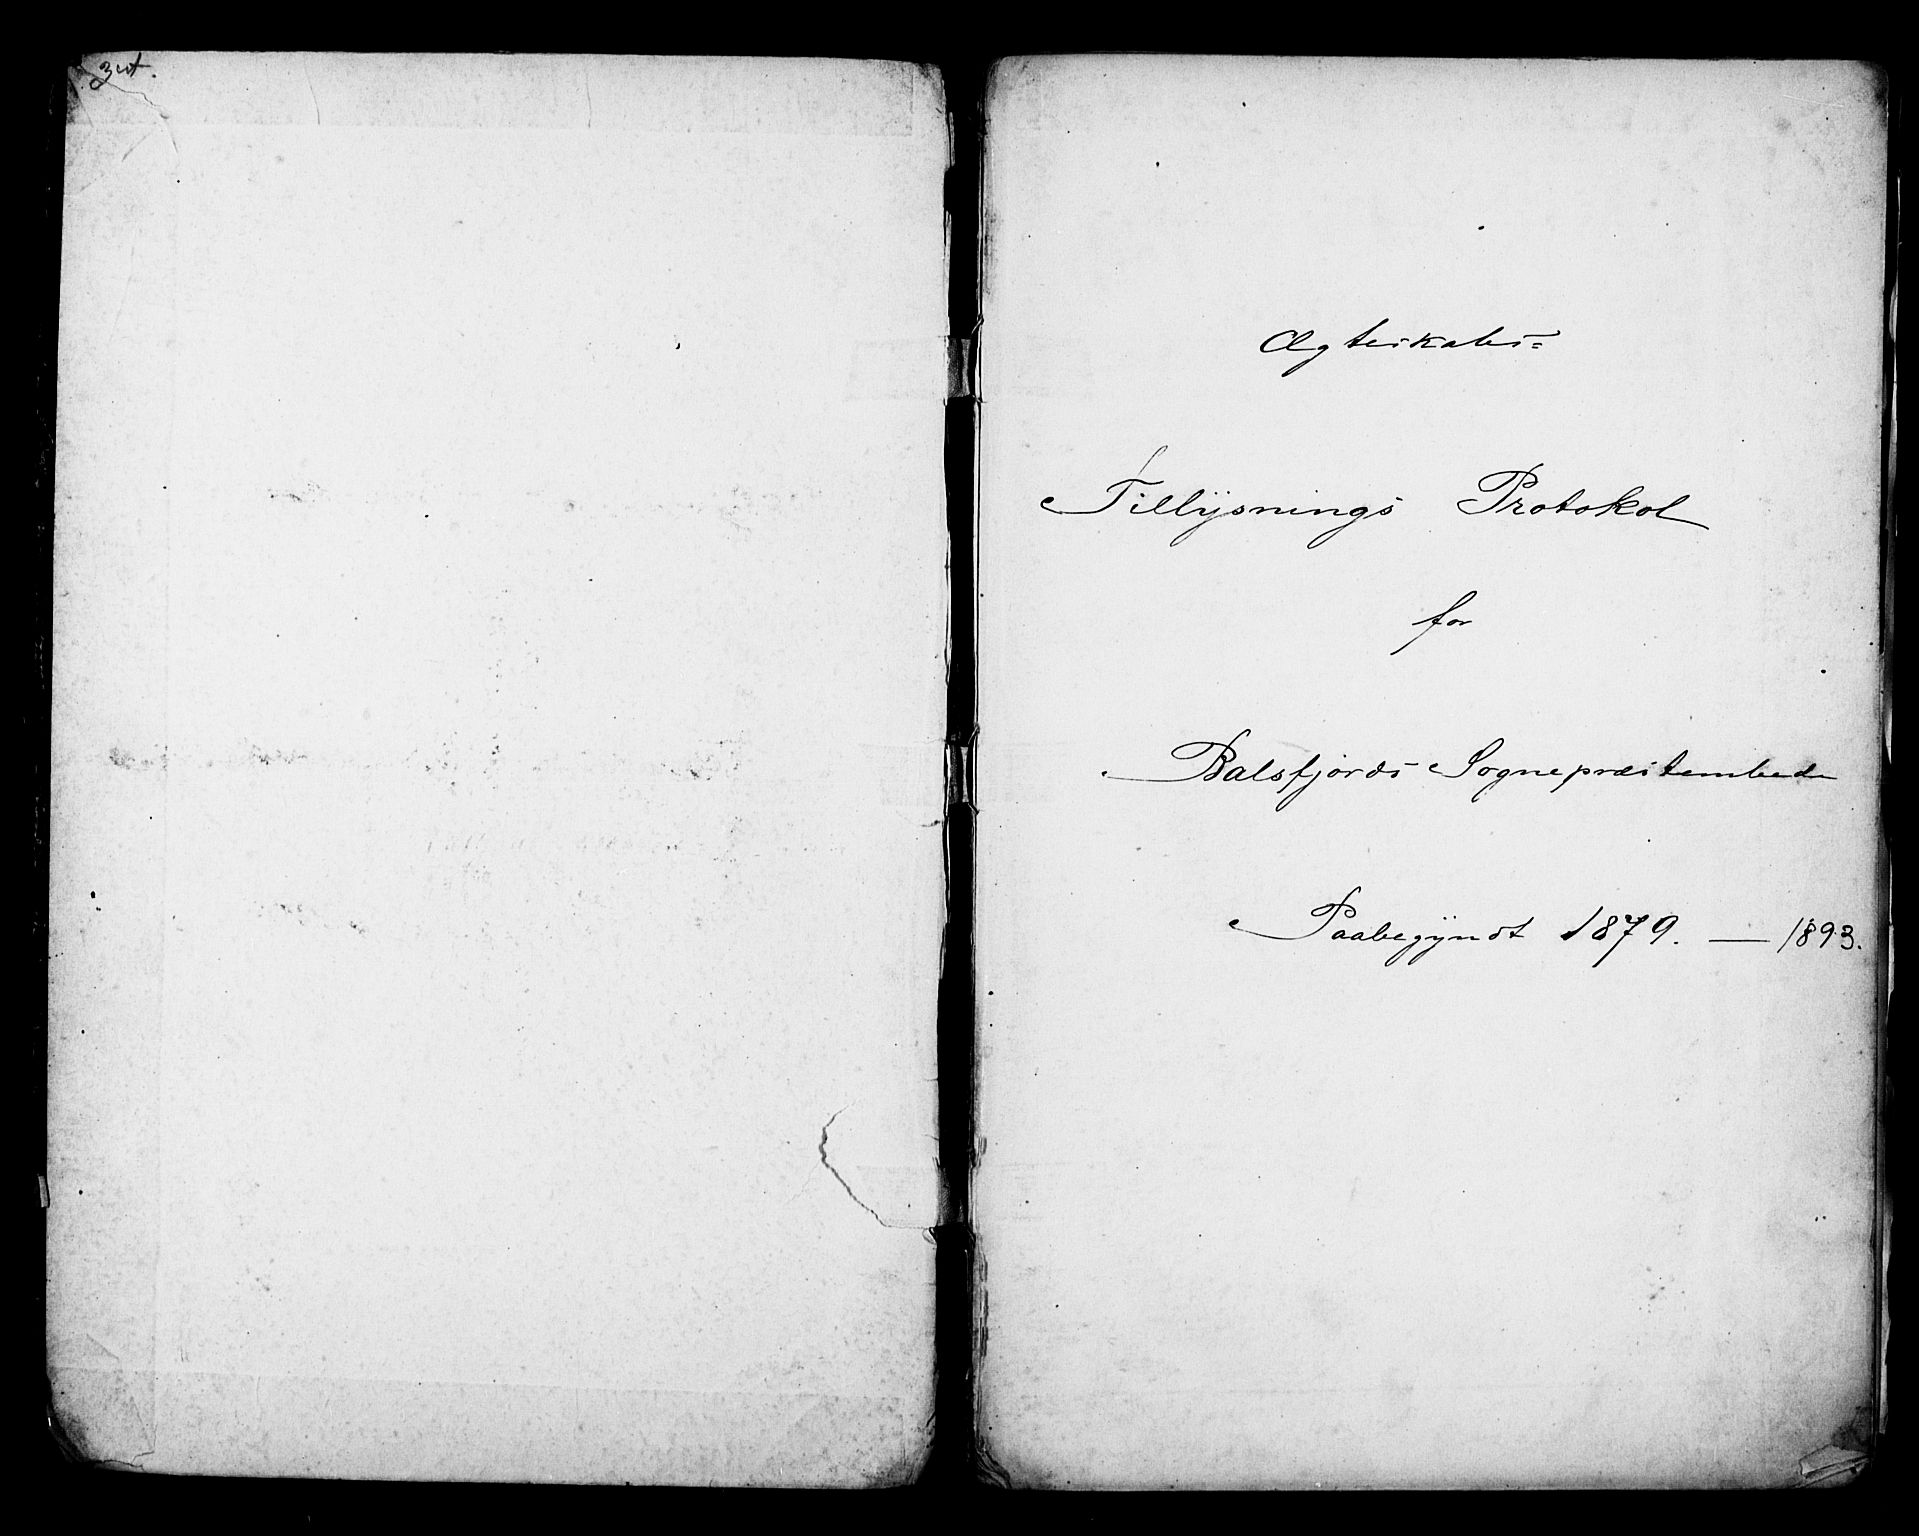 Ægteskabs=
Tillÿsnings Protokol
for
Balsfjords Sognepræstembede
Paabegÿndt 1879. — 1893.